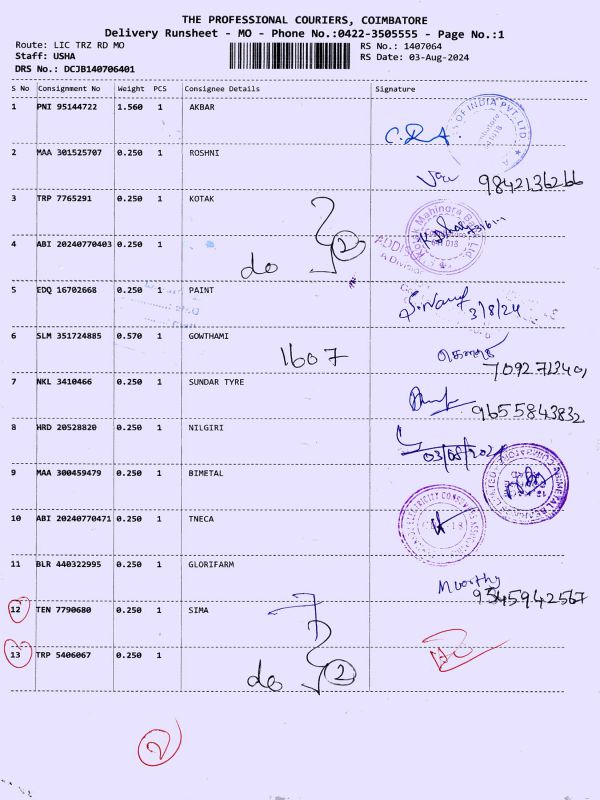 THE PROFESSIONAL COURIERS, COIMBATORE
Delivery Runsheet - MO - Phone No.:0422-3505555 - Page No.:1
Route: LIC TRZ RD MO RS No.: 1407064
Staff: USHA RS Date: 03-Aug-2024
DRS No.: DCJB140706401
S No Consignment No Weight PCS Consignee Details Signature
1 PNI 95144722 1.560 1 AKBAR
2 MAA 301525707 0.250 1 ROSHNI
9842136266
3 TRP 7765291 0.250 1 KOTAK
Kotak Mahindra Bank Ltd.
4 ABI 20240770403 0.250 1
do 2
5 EDQ 16702668 0.250 1 PAINT
3/8/24
6 SLM 351724885 0.570 1 GOWTHAMI
1607
7092713401
7 NKL 3410466 0.250 1 SUNDAR TYRE
9655843832
8 HRD 20528820 0.250 1 NILGIRI
03/08/2024
9 MAA 300459479 0.250 1 BIMETAL
10 ABI 20240770471 0.250 1 TNECA
11 BLR 440322995 0.250 1 GLORIFARM
Moorthy
9345942567
12 TEN 7790680 0.250 1 SIMA
13 TRP 5406067 0.250 1
do 2
2